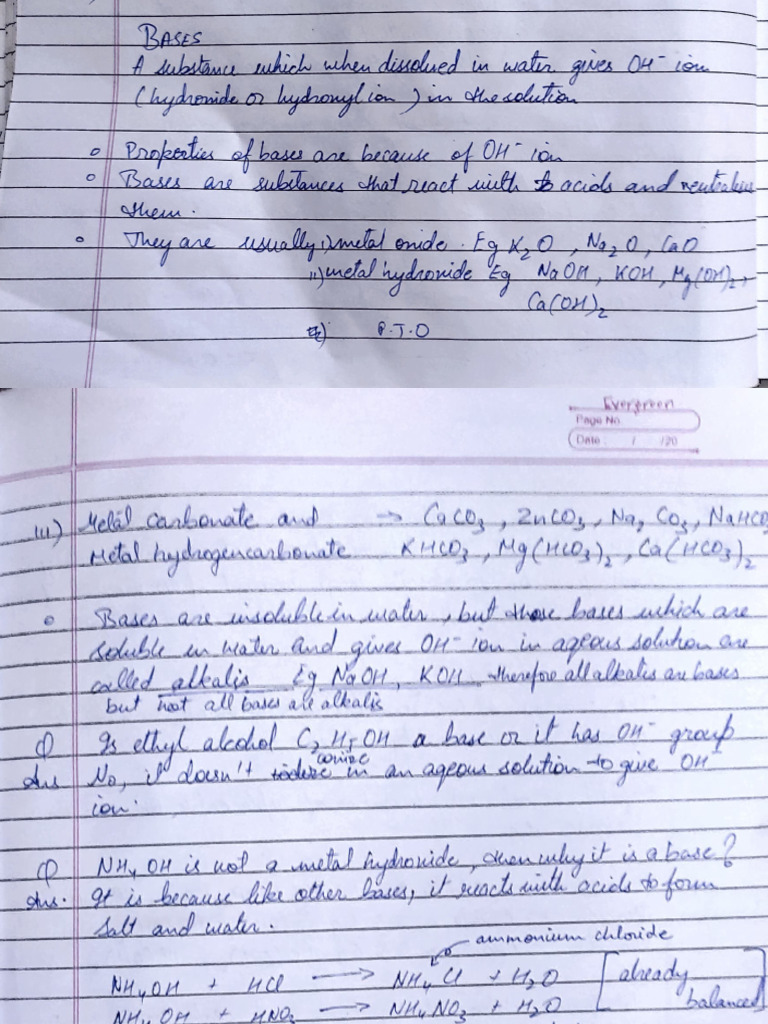 BASES
A substance which when dissolved in water gives OH⁻ ion
(hydroxide or hydroxyl ion) in the solution
○ Properties of bases are because of OH⁻ ion
○ Bases are substances that react with acids and neutralise
them.
○ They are usually i) metal oxide. Eg K₂O , Na₂O, CaO
ii) metal hydroxide Eg NaOH, KOH, Mg(OH)₂,
Ca(OH)₂
P.T.O
Evergreen
Page No.
Date: / /20
iii) Metal carbonate and → CaCO₃, ZnCO₃, Na₂ CO₃, NaHCO
Metal hydrogencarbonate KHCO₃, Mg(HCO₃)₂, Ca(HCO₃)₂
○ Bases are insoluble in water, but those bases which are
soluble in water and gives OH⁻ ion in aqeous solution are
called alkalis Eg NaOH, KOH. therefore all alkalis are bases
but not all bases are alkalis
Q Is ethyl alcohol C₂H₅OH a base or it has OH⁻ group
Ans No, it doesn't ionize in an aqeous solution to give OH⁻
ion.
Q NH₄OH is not a metal hydroxide, then why it is a base?
Ans. It is because like other bases, it reacts with acids to form
salt and water.
ammonium chloride
NH₄OH + HCl → NH₄Cl + H₂O [already
NH₄OH + HNO₃ → NH₄NO₃ + H₂O balanced]